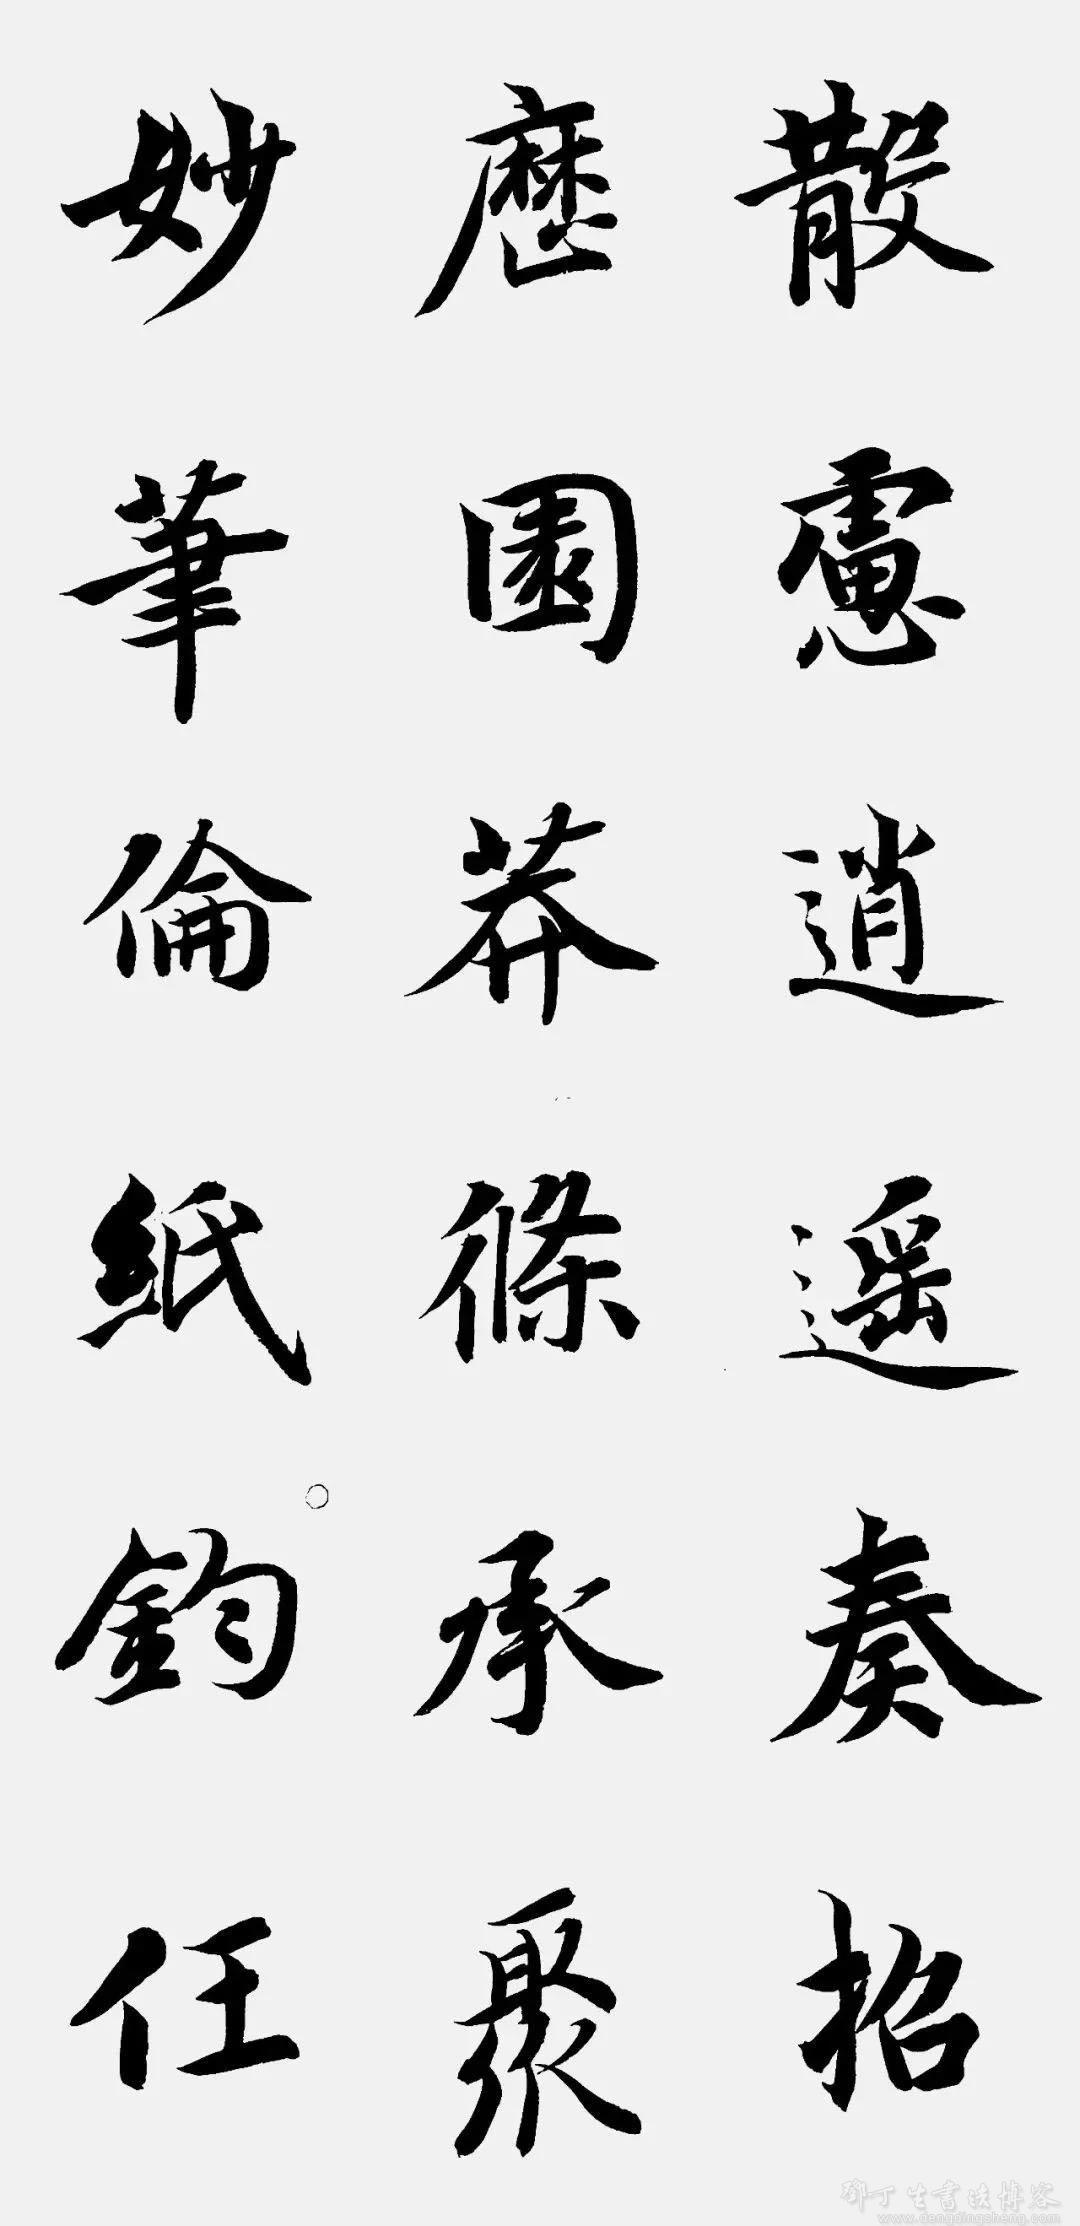 散慮逍遥奏招
歷園莽條承聚
妙筆倫紙鈞任
鄧丁生書法博客
www.dengdingsheng.com